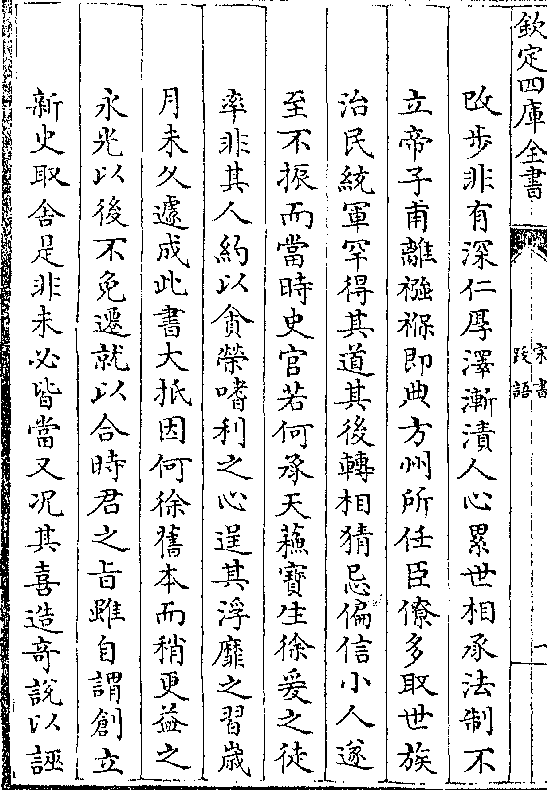 欽定四庫全書
宋書
跋語
一
改步非有深仁厚澤漸漬人心累世相承法制不
立帝子甫離襁褓即典方州所任臣僚多取世族
治民統軍罕得其道其後轉相猜忌偏信小人遂
至不振而當時史官若何承天蘓寶生徐爰之徒
率非其人約以貪榮嗜利之心逞其浮靡之習歲
月未久遽成此書大抵因何徐舊本而稍更益之
永光以後不免遷就以合時君之旨雖自謂創立
新史取舍是非未必皆當又况其喜造竒說以誣